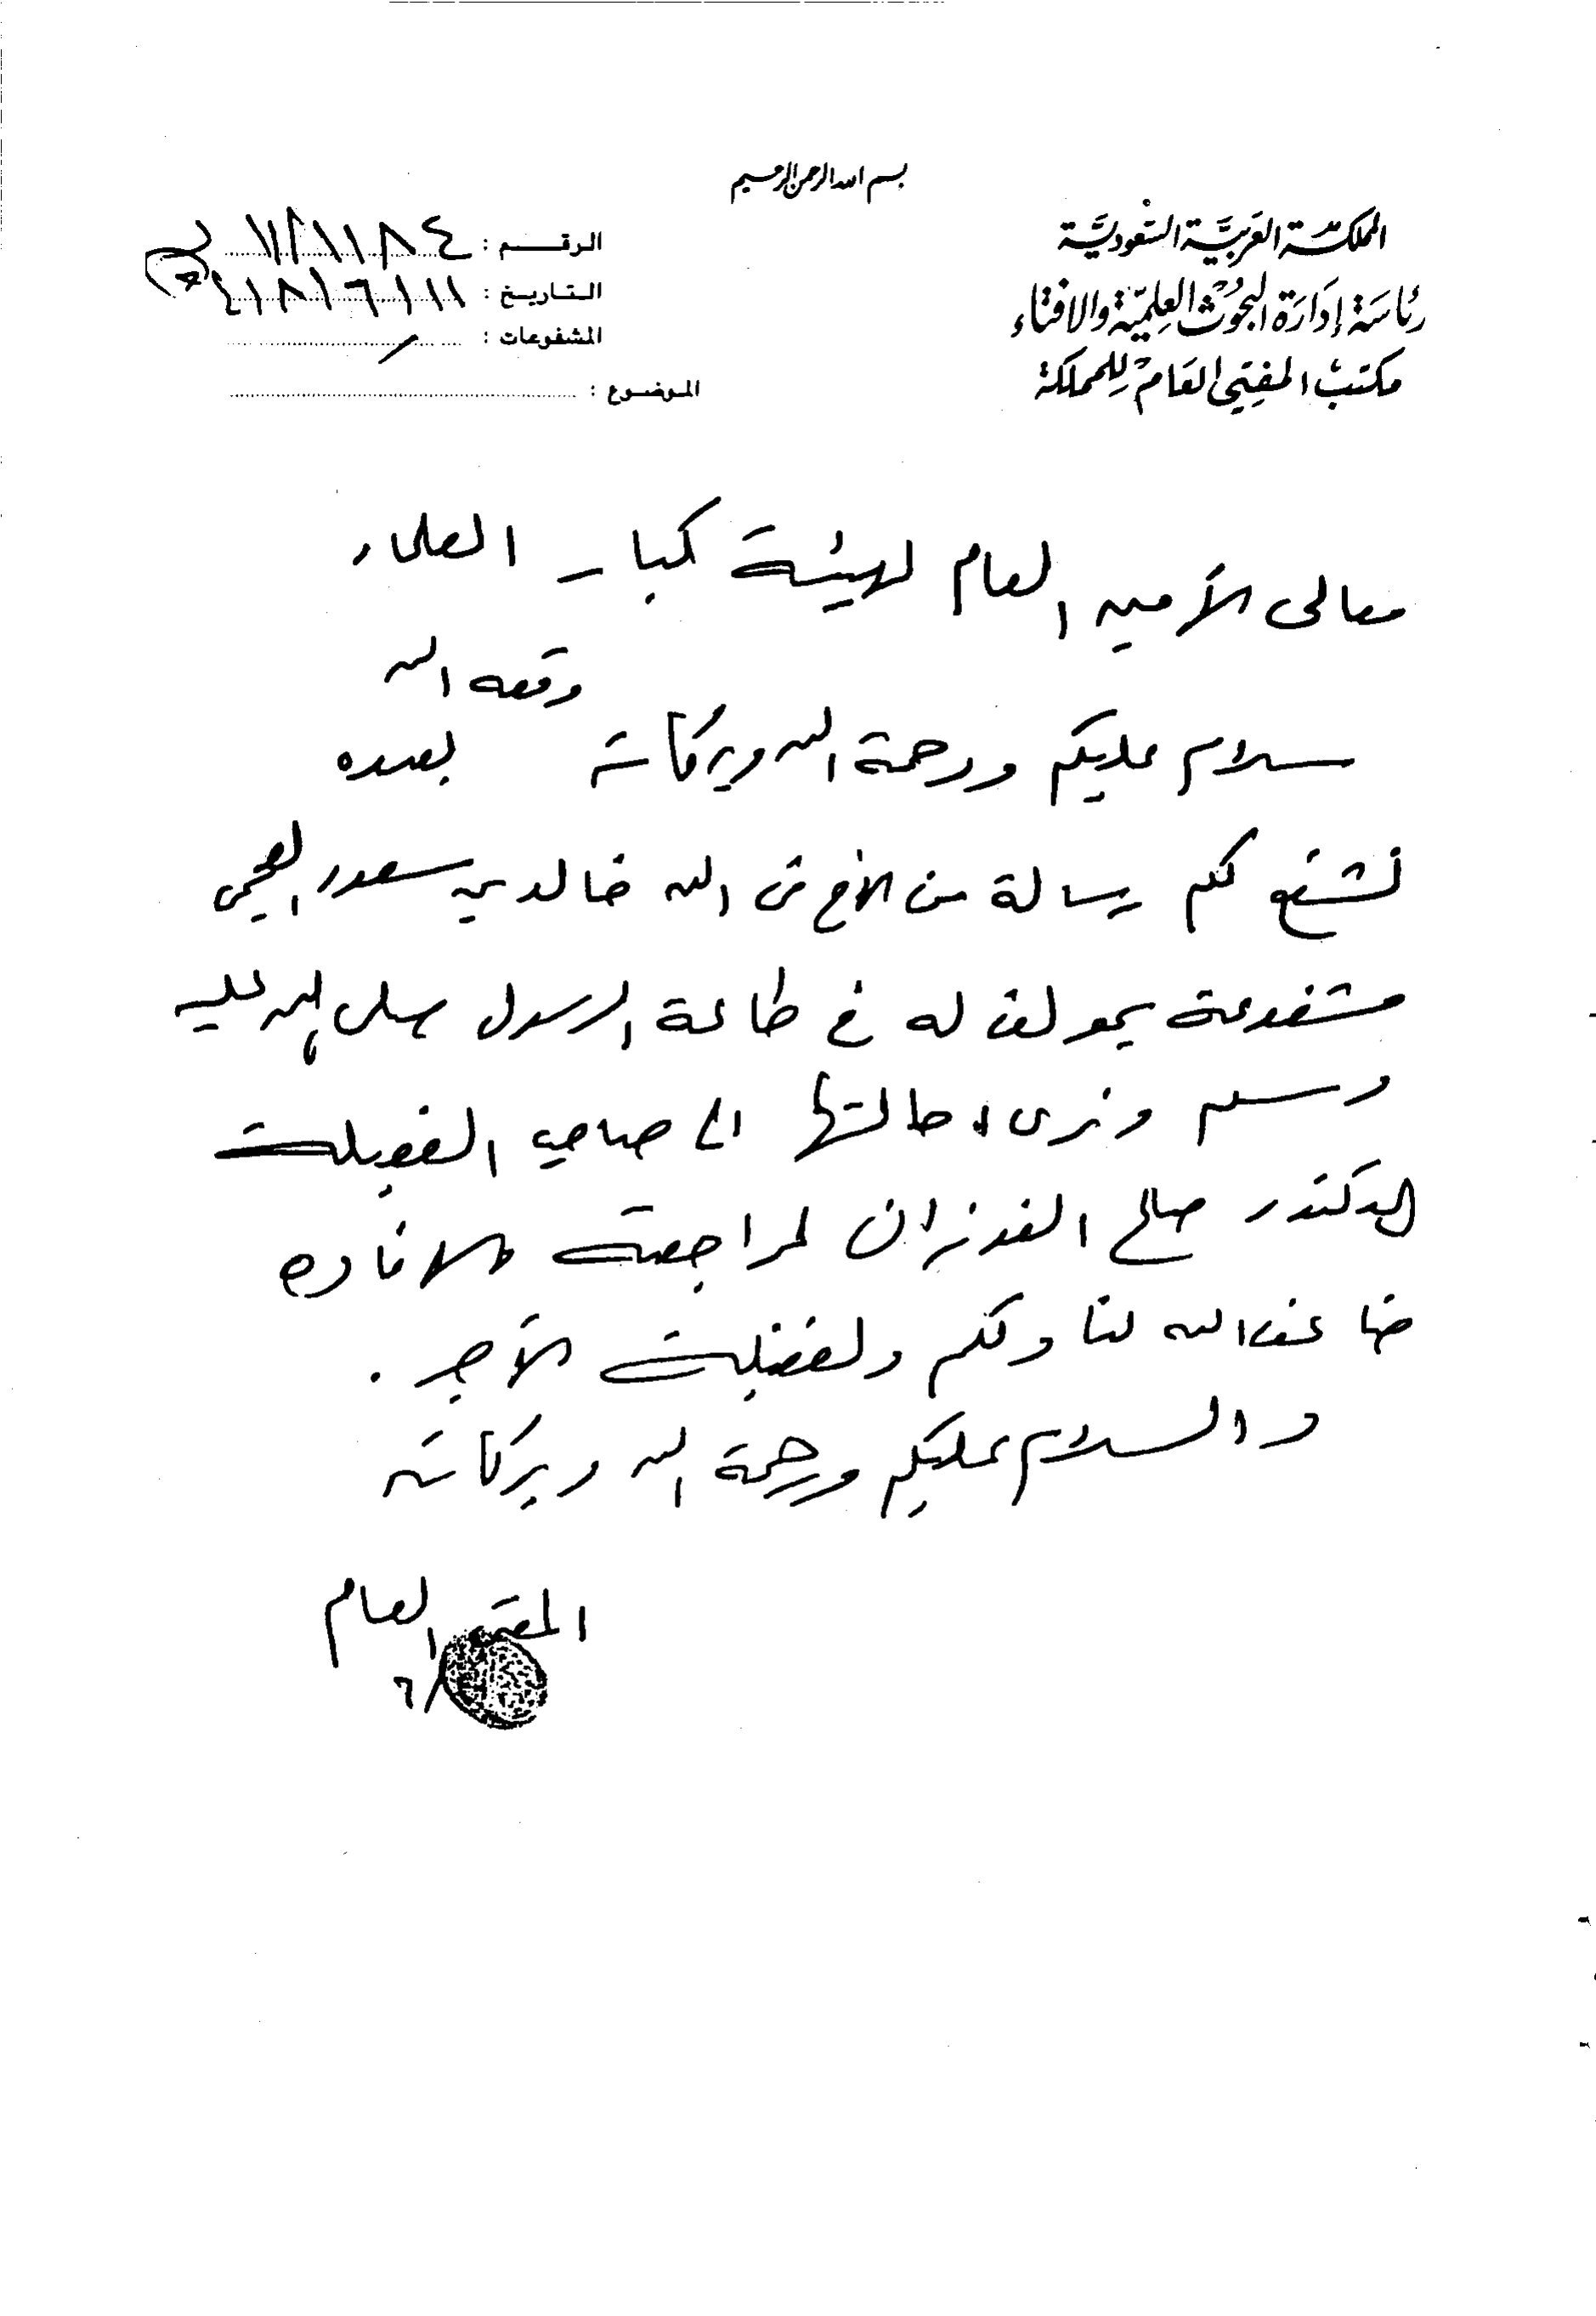 بسم الله الرحمن الرحيم
المملكة العربية السعودية
رئاسة إدارة البحوث العلمية والافتاء
مكتب المفتي العام للمملكة
الرقـــم :
التاريخ : ١١ / ٦ / ١٨
المشفوعات :
الموضوع :
معالى الأمين العام لهيئة كبار العلماء
وفقه الله
سلام عليكم ورحمة الله وبركاته بعده
نشفع لكم رسالة من الأخ في الله خالد بن سعود العجمي
مشفوعة بمولف له في طاعة الرسول صلى الله عليه
وسلم ونرى احالتها الى صاحب الفضيلة
الدكتور صالح الفوزان لمراجعته والافاده
ضاعف الله لنا ولكم ولفضيلته الأجر .
والسلام عليكم ورحمة الله وبركاته
المفتي العام